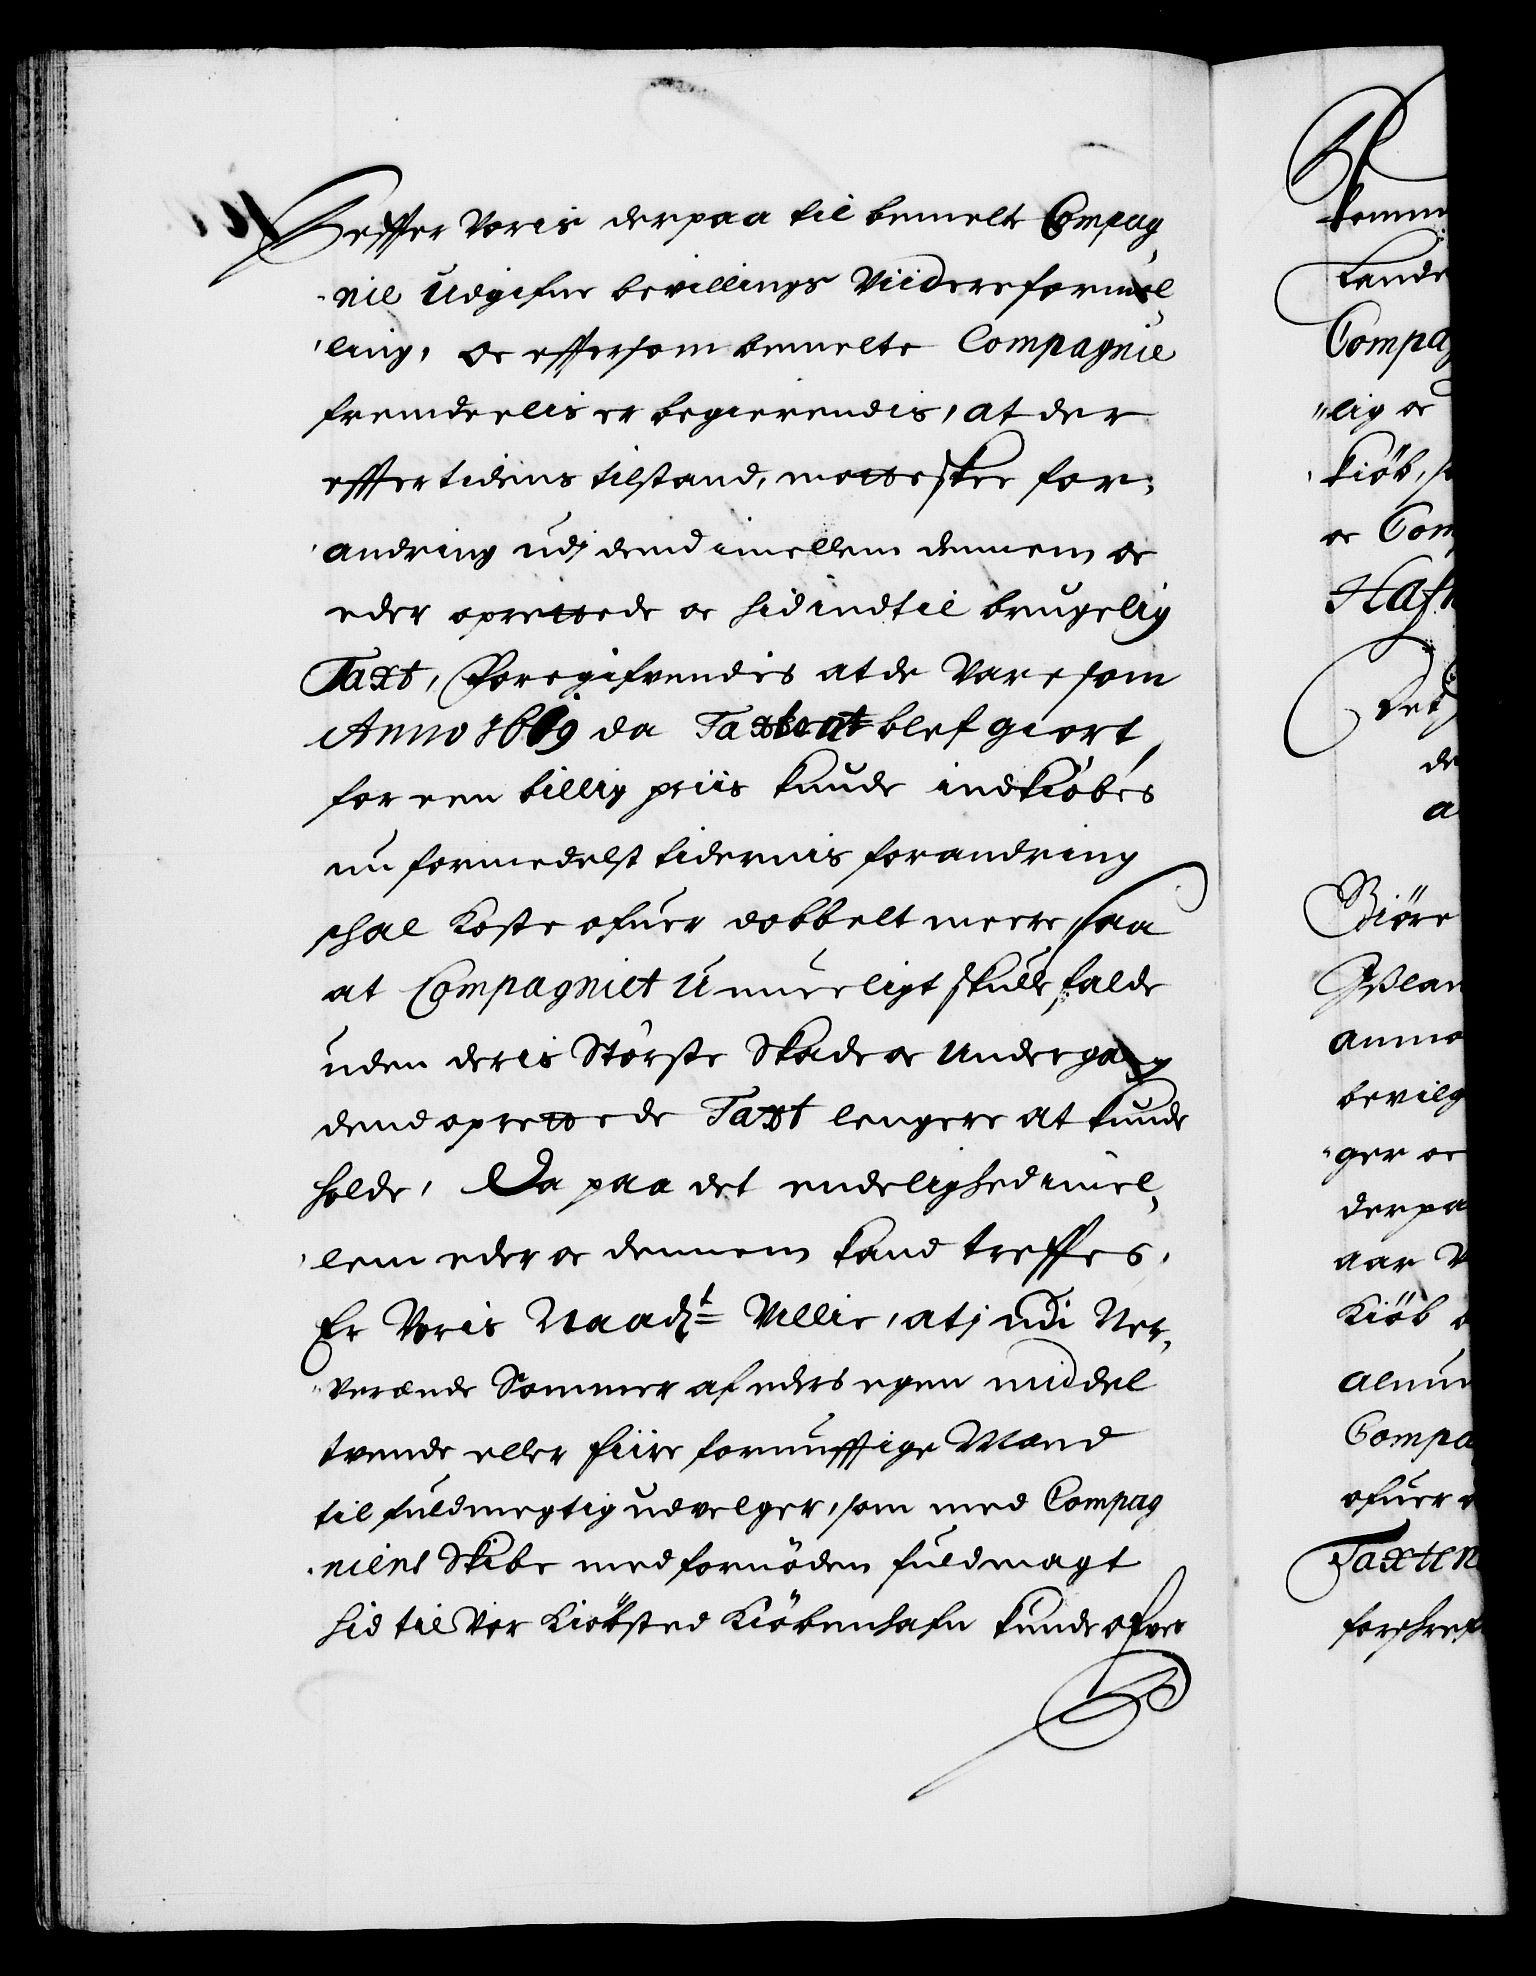 Effter Voris derpaa til bemelte Compag
nie Udgifne bevillings Viidere formel
ling, oc effersom bemelte Compagnie
fremdeelis er begierendis, at der
effter tidens tilstand, motte skee for:
andring udj dend imellem dennem oc
eder oprettede oc hid indtil brugelig
Taxt, Foregifvendis at de Vare som
Anno 1619 da Taxten blef giort,
for een billig priis kunde indkiöbes
nu formedelst tidernis forandring
schal koste ofuer dobbelt meere saa
at Compagniet Umueligt skulle falde
uden deris Störste Skade oc Undergang
dend oprettede Taxt lengere at kunde
holde, Da paa det endelighed imel,
lem eder oc dennem kand treffes,
Er Voris Naadst Villie, at j udi Ner,
verende Sommer af eders egen middel
trende eller fiire fornufftige Mend
til fuldmegtig udvelger, som med Compag
niens Skibe med fornöden fuldmagt
hid til Vor Kiöbsted Kiöbenhafn kunde ofver
Compa
lig oc
kiöb, s
oc Com
Hafn
Det
de
a
bevilg
ger oc
derpa
aar V
Kiöb
Compa
ofuer
Taxten
forschref